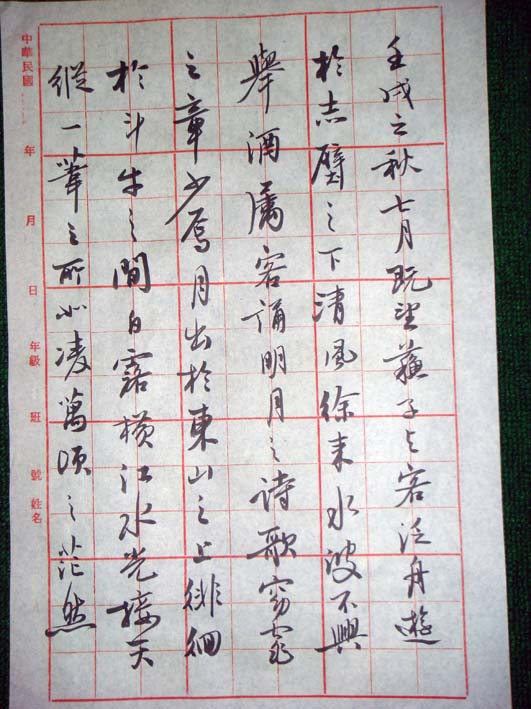 壬戌之秋七月既望蘇子与客泛舟遊
於赤壁之下清風徐来水波不興
舉酒屬客誦明月之詩歌窈窕
之章少焉月出於東山之上徘徊
於斗牛之間白露橫江水光接天
縱一葦之所如凌萬頃之茫然
中華民國 年 月 日 年級 班 號 姓名